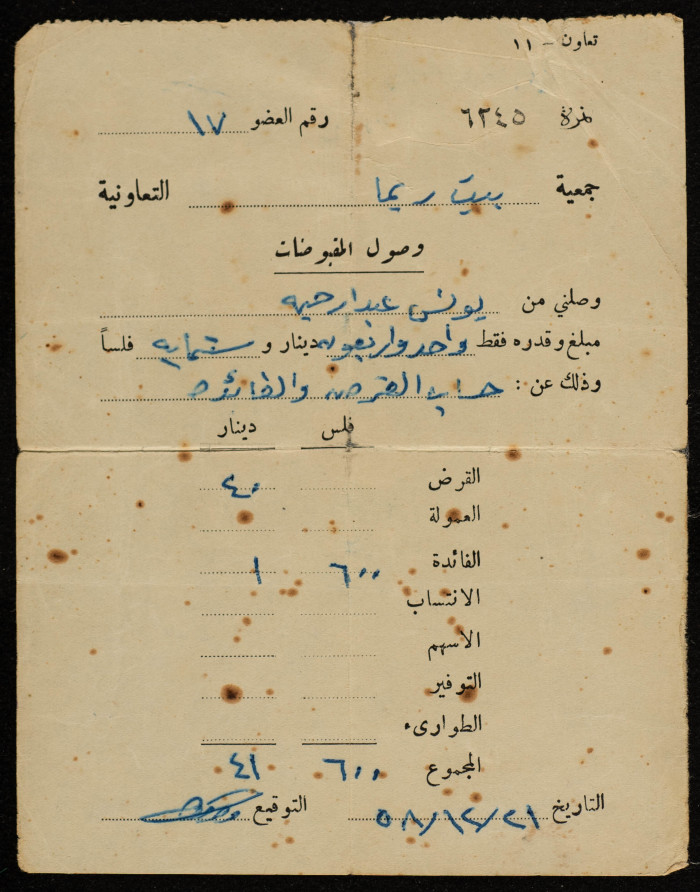 تعاون - ١١
نمرة ٦٢٤٥ رقم العضو ١٧
جمعية بيت ريما التعاونية
وصول المقبوضات
وصلني من يونس عبدارحيم
مبلغ وقدره فقط واحد واربعون دينار و ستمايه فلساً
وذلك عن : حساب القرض والفائده
فلس دينار
القرض ٤٠
العمولة
الفائدة ٦٠٠ ١
الانتساب
الاسهم
التوفير
الطوارىء
المجموع ٦٠٠ ٤١
التاريخ ٥٨/١٢/٢١ التوقيع